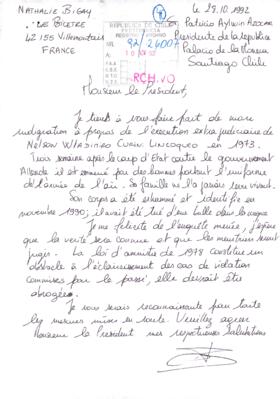 NATHALIE BIGAY
"LE GUETRE"
42 155 Villemontais
FRANCE
le 29.10 1992
Patricio Aylwin Azocar
Presidente de la republica
Palacio de la Moneda
Santiago Chile
REPUBLICA DE CHILE
PRESIDENCIA
REGISTRO Y ARCHIVO
NR. 92/24007
RCH.VO
Monsieur le Président,
Je tiens à vous faire part de mon
indignation à propos de l'exécution extra judiciaire de
NELSON WLADIMIRO CURIÑIR LINCOQUEO en 1973.
Trois semaines après le coup d'Etat contre le gouvernement
Allende il est emmené par des hommes portant l'uniforme
de l'armée de l'air. Sa famille ne l'a jamais revu vivant.
Son corps a été exhumé et identifié en
novembre 1990; il avait été tué d'une balle dans le
Je me félicite de l'enquête menée, j'espère
que la vérité sera connue et que les meurtriers seront
jugés. La loi d'amnistie de 1978 constitue un
obstacle à l'éclaircissement des cas de violation
commises par le passé, elle devrait être
abrogée.
Je vous serais reconnaissante pour toute
les mesures mises en route. Veuillez agréer
Monsieur le President mes respectueuses salutations